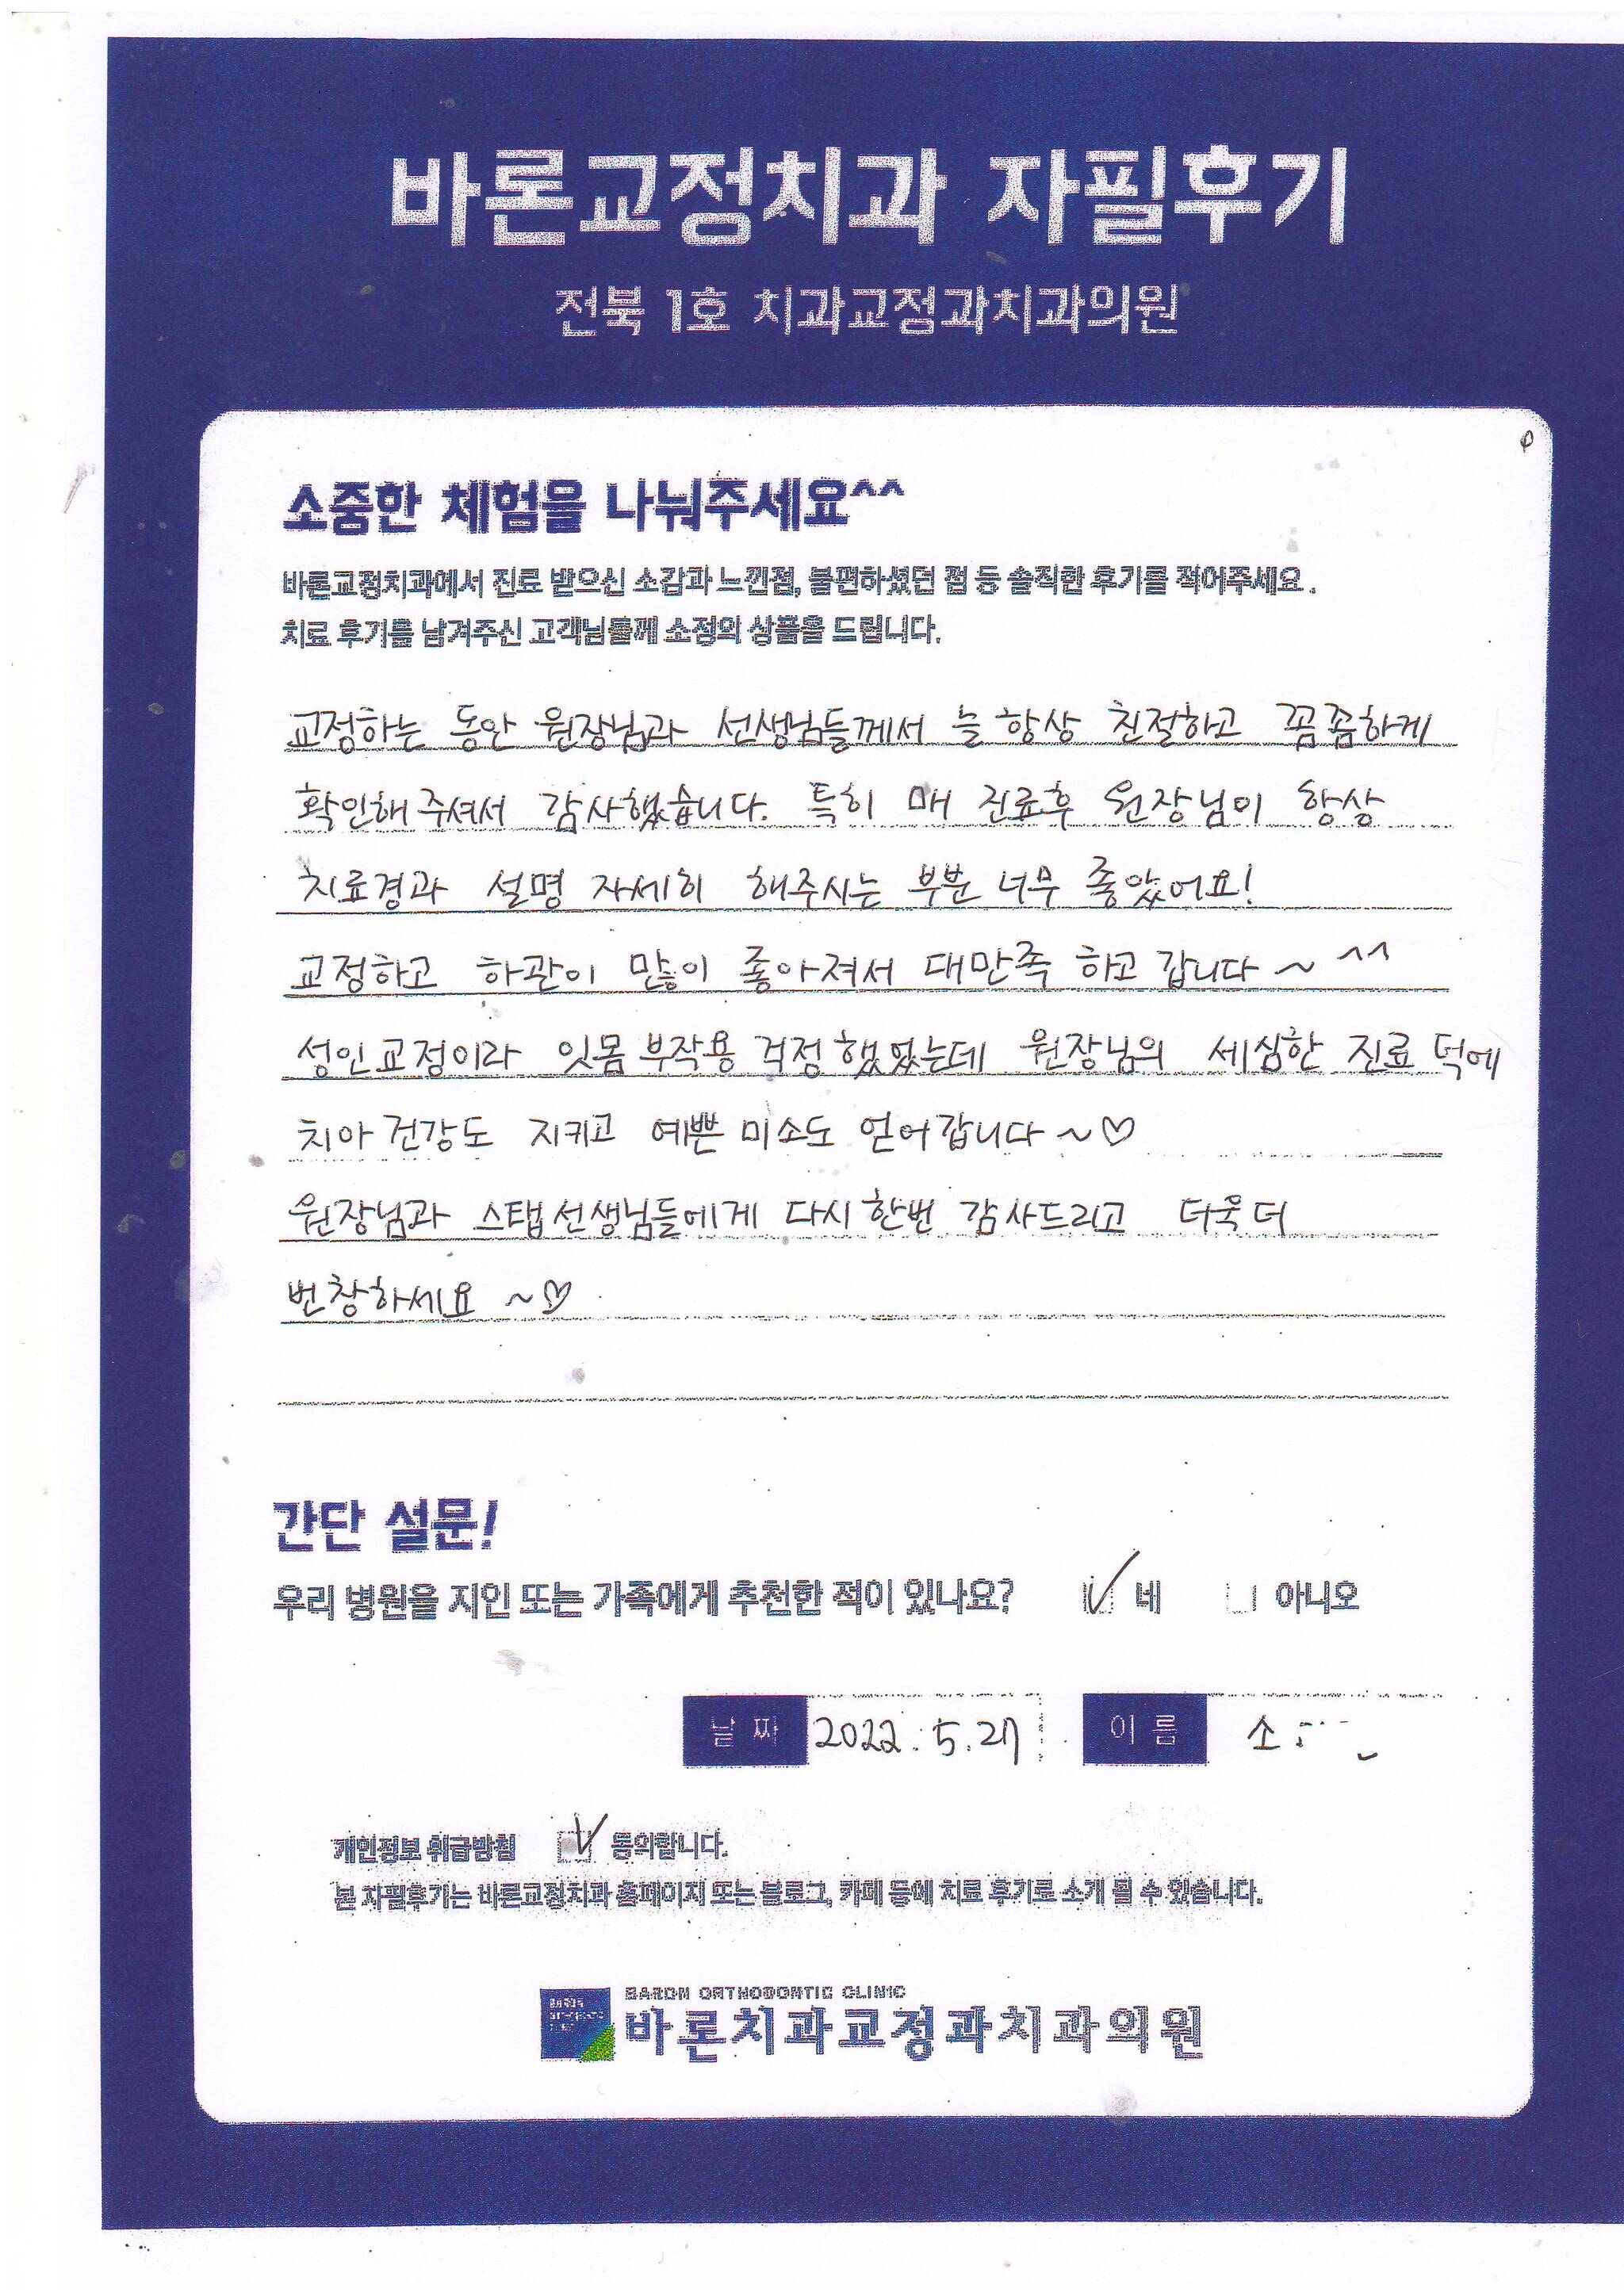 바론교정치과 자필후기
전북 1호 치과교정과치과의원
소중한 체험을 나눠주세요^^
바론교정치과에서 진료 받으신 소감과 느낀점, 불편하셨던 점 등 솔직한 후기를 적어주세요.
치료 후기를 남겨주신 고객님들께 소정의 상품을 드립니다.
교정하는 동안 원장님과 선생님들께서 늘 항상 친절하고 꼼꼼하게
확인해주셔서 감사했습니다. 특히 매 진료후 원장님이 항상
치료경과 설명 자세히 해주시는 부분 너무 좋았어요!
교정하고 하관이 많이 좋아져서 대만족 하고 갑니다~ ^^
성인교정이라 잇몸 부작용 걱정했었는데 원장님의 세심한 진료 덕에
치아 건강도 지키고 예쁜 미소도 얻어갑니다~♡
원장님과 스탭선생님들에게 다시 한번 감사드리고 더욱 더
번창하세요 ~♡
간단 설문!
우리 병원을 지인 또는 가족에게 추천한 적이 있나요? ✓ 네 아니오
날짜 2022. 5. 27 이름 소
개인정보 취급방침 ✓ 동의합니다.
본 자필후기는 바른교정치과 홈페이지 또는 블로그, 카페 등에 치료 후기로 소개 될 수 있습니다.
BARON ORTHODONTIC CLINIC
바론치과교정과치과의원